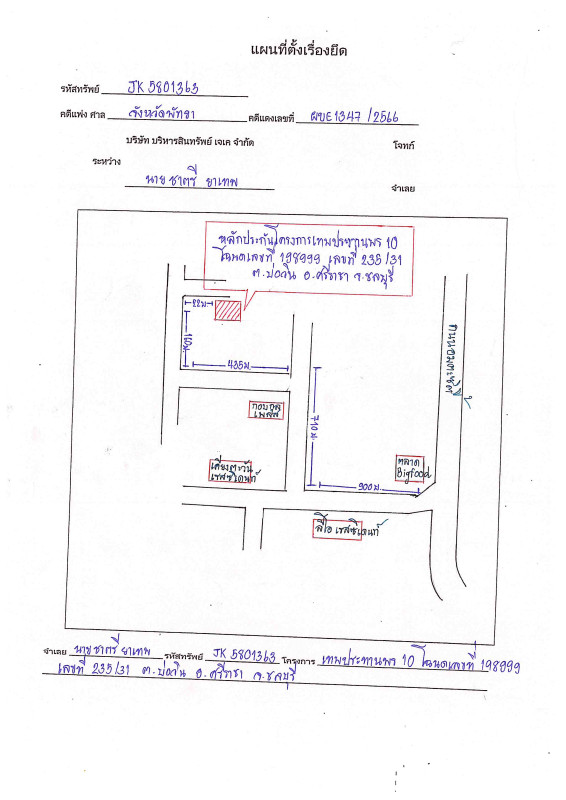 แผนที่ตั้งเรื่องยึด
รหัสทรัพย์ JK 5801363
คดีแพ่ง ศาล จังหวัดพัทยา คดีแดงเลขที่ ผบE1347 /2566
บริษัท บริหารสินทรัพย์ เจเค จำกัด โจทก์
ระหว่าง
นาย ชาตรี ยาเทพ จำเลย
หลักประกันโครงการเทพประทานพร 10
โฉนดเลขที่ 198999 เลขที่ 235/31
ต.บ่อวิน อ.ศรีราชา จ.ชลบุรี
22ม.
435ม.
710 ม.
900 ม.
ตลาด
Bigfood
เคียงตะวัน
เรสซิเดนท์
ลีโอ เรสซิเดนท์
จำเลย นายชาตรี ยาเทพ รหัสทรัพย์ JK 5801363 โครงการ เทพประทานพร 10 โฉนดเลขที่ 198999
เลขที่ 235/31 ต.บ่อวิน อ.ศรีราชา จ.ชลบุรี